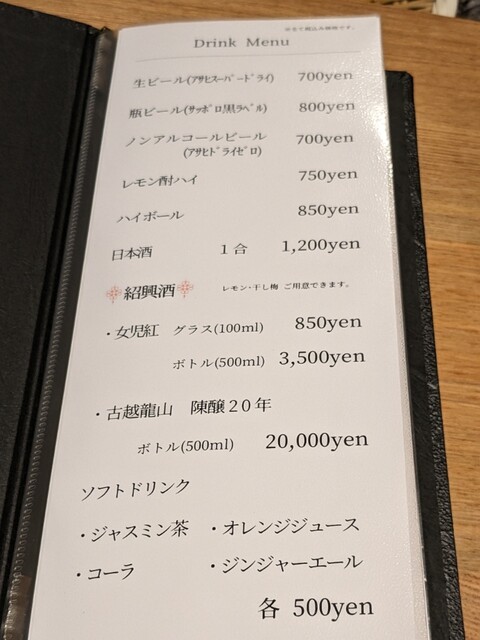 ※全て税込み価格です。
Drink Menu
生ビール(ｱｻﾋｽｰﾊﾟｰﾄﾞﾗｲ) 700yen
瓶ビール(ｻｯﾎﾟﾛ黒ﾗﾍﾞﾙ) 800yen
ノンアルコールビール 700yen
(ｱｻﾋﾄﾞﾗｲｾﾞﾛ)
レモン酎ハイ 750yen
ハイボール 850yen
日本酒 1合 1,200yen
紹興酒 レモン・干し梅 ご用意できます。
・女児紅 グラス(100ml) 850yen
ボトル(500ml) 3,500yen
・古越龍山 陳醸20年
ボトル(500ml) 20,000yen
ソフトドリンク
・ジャスミン茶 ・オレンジジュース
・コーラ ・ジンジャーエール
各 500yen